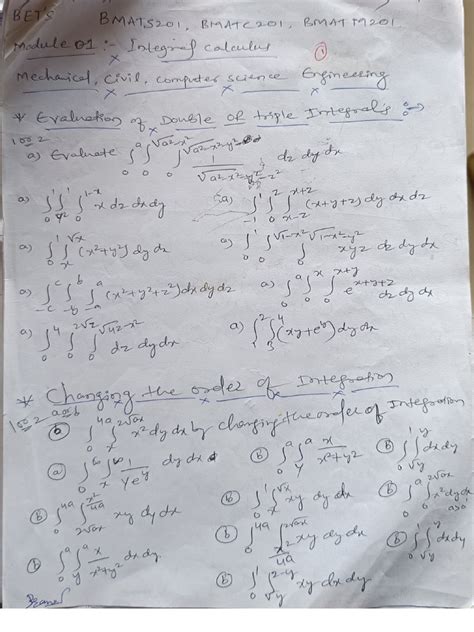 BET'S BMATS201, BMATC201, BMATM201
Module 01 :- Integral calculus
①
Mechanical, Civil, computer science Engineering
* Evaluation of Double or triple Integrals :→
1 or 2
a) Evaluate ∫₀^a ∫₀^√(a²-x²) ∫₀^√(a²-x²-y²) 1/√(a²-x²-y²-z²) dz dy dx
a) ∫₀^1 ∫_{y²}^1 ∫₀^{1-x} x dz dx dy a) ∫_{-1}^1 ∫₀^z ∫_{x-z}^{x+z} (x+y+z) dy dx dz
a) ∫₀^1 ∫_x^√x (x²+y²) dy dx a) ∫₀^1 ∫₀^√(1-x²) ∫₀^√(1-x²-y²) xyz dz dy dx
a) ∫_{-c}^c ∫_{-b}^b ∫_{-a}^a (x²+y²+z²) dx dy dz a) ∫₀^a ∫₀^x ∫₀^{x+y} e^{x+y+z} dz dy dx
a) ∫₀^4 ∫₀^{2√z} ∫₀^√(4z-x²) dz dy dx a) ∫₁^2 ∫₃^4 (xy+e^y) dy dx
* Changing the order of Integration
1 or 2 a or b
ⓐ ∫₀^{4a} ∫_x^{2√ax} x² dy dx by changing the order of Integration
ⓐ ∫₀^∞ ∫_x^∞ 1/(y e^y) dy dx ⓑ ∫₀^a ∫_y^a x/(x²+y²) ⓑ ∫₀^1 ∫_{√y}^y dx dy
ⓑ ∫₀^{4a} ∫_{2√ax}^{x²/4a} xy dy dx ⓑ ∫₀^1 ∫_x^√x xy dy dx ⓑ ∫₀^a ∫₀^{2√ax} x² dy dx a>0
ⓑ ∫₀^a ∫_y^a x/(x²+y²) dx dy ⓑ ∫₀^{4a} ∫_{x²/4a}^{2√ax} xy dy dx ⓑ ∫₀^1 ∫_{√y}^y dx dy
ⓑ ∫₀^1 ∫_{√y}^{2-y} xy dx dy